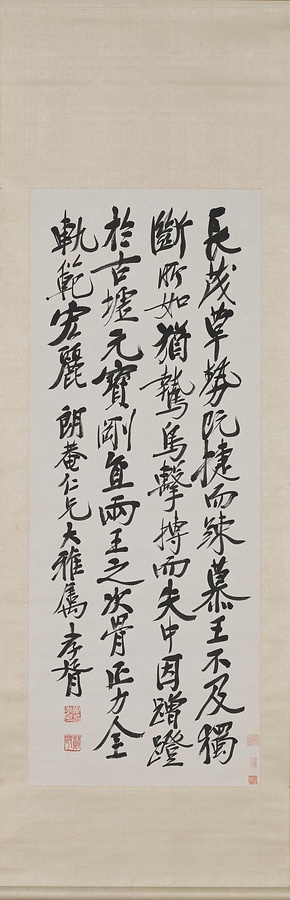 長茂草勢既捷而疎慕王不及獨
斷所如猶鷙鳥擊搏而失中因蹭蹬
於古墟元寶剛直兩王之次骨正力全
軌範宏麗 朗菴仁兄大雅屬 孝胥